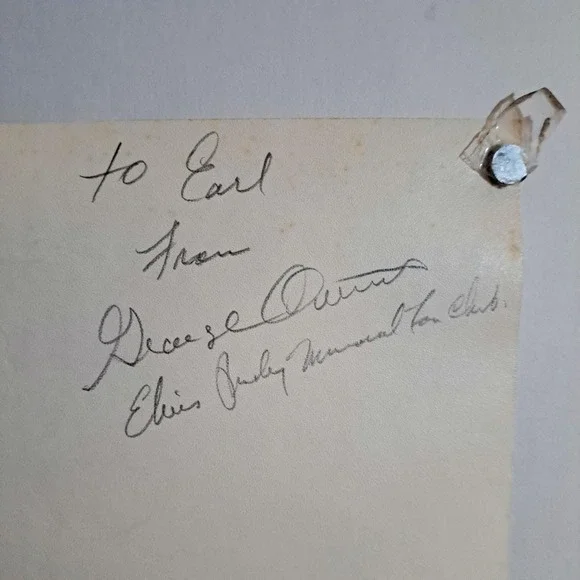 to Earl
From
George
Elvis Presley Memorial Fan Club.